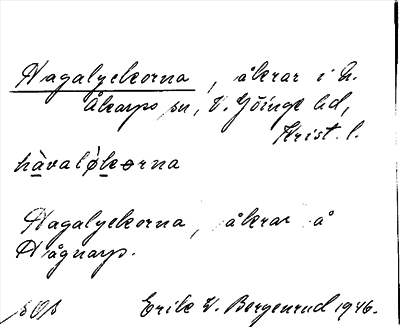 Hagalyckorna, åkrar i N.
Åkarps sn, V. Göinge hd,
Krist. l.
hàvaløkorna
Hagalyckorna, åkrar å
Hågnarp.
Erik W. Bergenrud 1946.